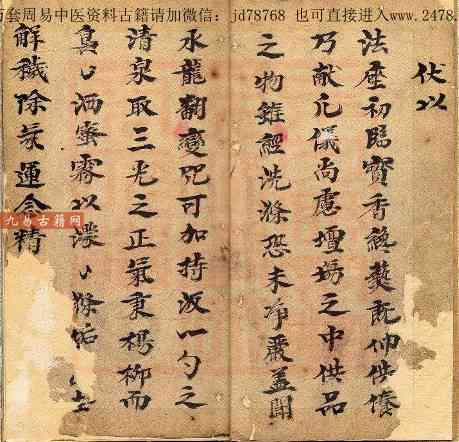 套周易中医资料古籍请加微信：jd78768 也可直接进入www.2478.
伏以
法座初臨寳香爇既仰供養
乃献凡儀尚慮壇場之中供品
之物雖經洗滌恐未净嚴蓋聞
水龍翻變咒可加持汲一勺之
清泉取三光之正氣秉楊柳而
洒蜜霧以濛滌垢
解穢除氛運精
九易古籍网